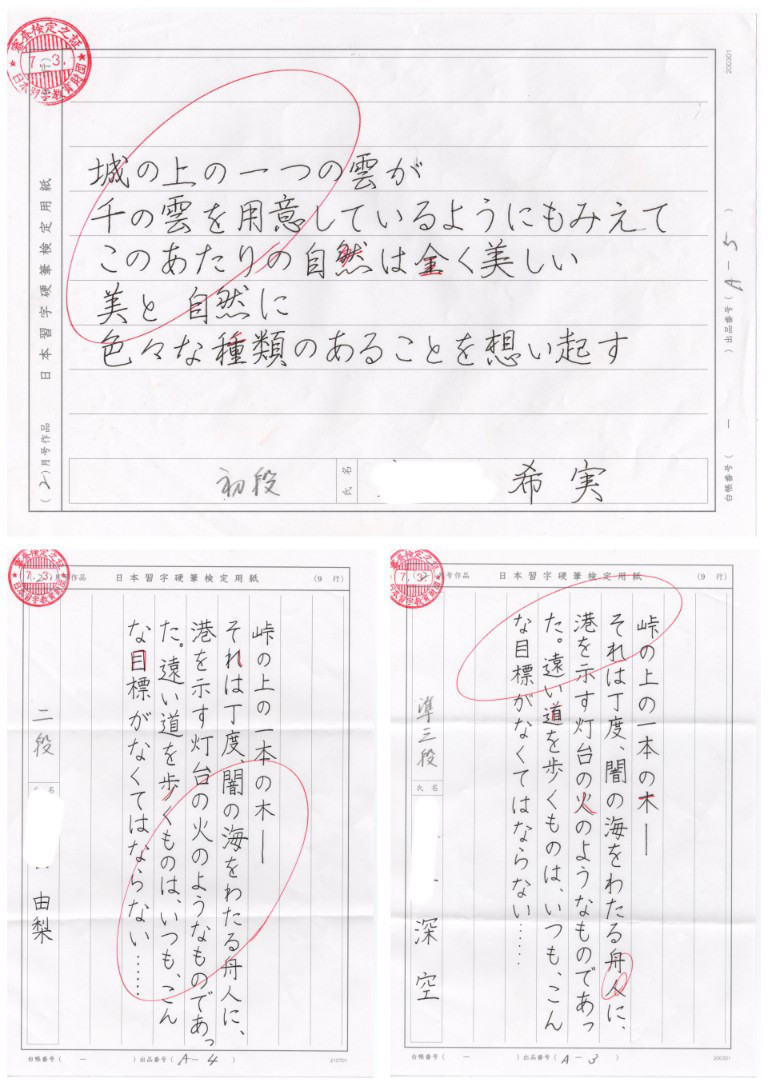 審査検定之証
7.3.
日本習字教育財団
200301
日本習字硬筆検定用紙
(2)月号作品
城の上の一つの雲が
千の雲を用意しているようにもみえて
このあたりの自然は全く美しい
美と自然に
色々な種類のあることを想い起す
初段
氏名
希実
台帳番号( ー )出品番号( A-5 )
審査検定之証
7.3.
日本習字教育財団
月号作品
日本習字硬筆検定用紙
(9行)
峠の上の一本の木――
それは丁度、闇の海をわたる舟人に、
港を示す灯台の火のようなものであっ
た。遠い道を歩くものは、いつも、こん
な目標がなくてはならない……
二段
名
由梨
台帳番号( ー )出品番号( A-4 )
210701
審査検定之証
7.3.
日本習字教育財団
号作品
日本習字硬筆検定用紙
(9行)
峠の上の一本の木――
それは丁度、闇の海をわたる舟人に、
港を示す灯台の火のようなものであっ
た。遠い道を歩くものは、いつも、こん
な目標がなくてはならない……
準三段
氏名
深空
台帳番号( ー )出品番号( A-3 )
200301